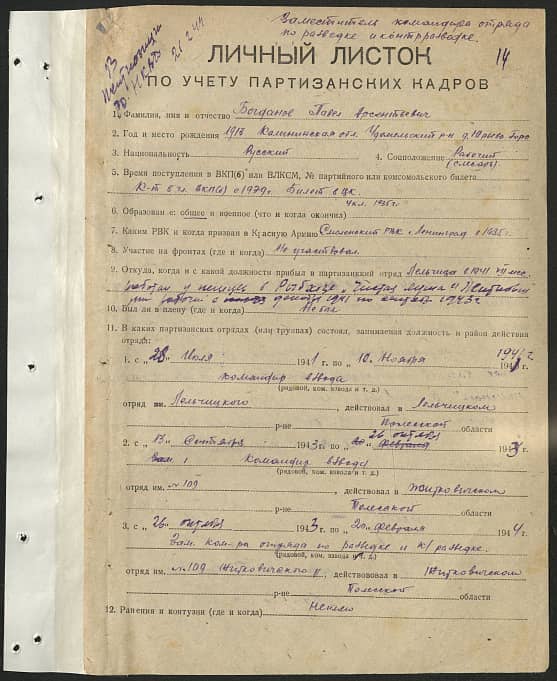 Заместитель командира отряда
по разведке и контрразведке.
14
13
21 2 44
ЛИЧНЫЙ ЛИСТОК
ПО УЧЕТУ ПАРТИЗАНСКИХ КАДРОВ
1. Фамилия, имя и отчество Богданов Павел Арсентьевич
2. Год и место рождения 1913 Калининская обл. Удомельский р-н д. Юрьево
3. Национальность Русский 4. Соцположение Рабочий
(слесарь)
5. Время поступления в ВКП(б) или ВЛКСМ, № партийного или комсомольского билета
К-т в чл. ВКП(б) с Билет в ЦК.
6. Образован е: общее и военное (что и когда окончил) 4 кл. 1925 г.
7. Каким РВК и когда призван в Красную Армию Смоленский РВК г. Ленинград в 1935 г.
8. Участие на фронтах (где и когда) Не участвовал
9. Откуда, когда и с какой должности прибыл в партизанский отряд Лельчицы в 1941 VII мес.
работал у немцев в Рыбхозе
1941 по 1943 г
10. Был ли в плену (где и когда) Не был
11. В каких партизанских отрядах (или группах) состоял, занимаемая должность и район действия
отряда:
1. с „28„ Июля 1941 г. по „10„ Ноября 1941 г
командир взвода
(рядовой, ком. взвода и т. д.)
отряд им. Лельчицкого, действовал в Лельчицком
р-не Полесской области
2. с „13„ Сентября 1943 г. по „26 октября 1943
Зам. командир взвода
(рядовой, ком. взвода и т. д.)
отряд им. №109, действовал в Житковичском
р-не Полесской области
3. с „26„ октября 1943 г. по „20„ февраля 1944 г.
Зам. ком-ра отряда по разведке и к/разведке.
(рядовой, ком. взвода и т. д.)
отряд им. №109 Житковичского, действововал в Житковичском
р-не Полесской области
12. Ранения и контузии (где и когда) Не имею